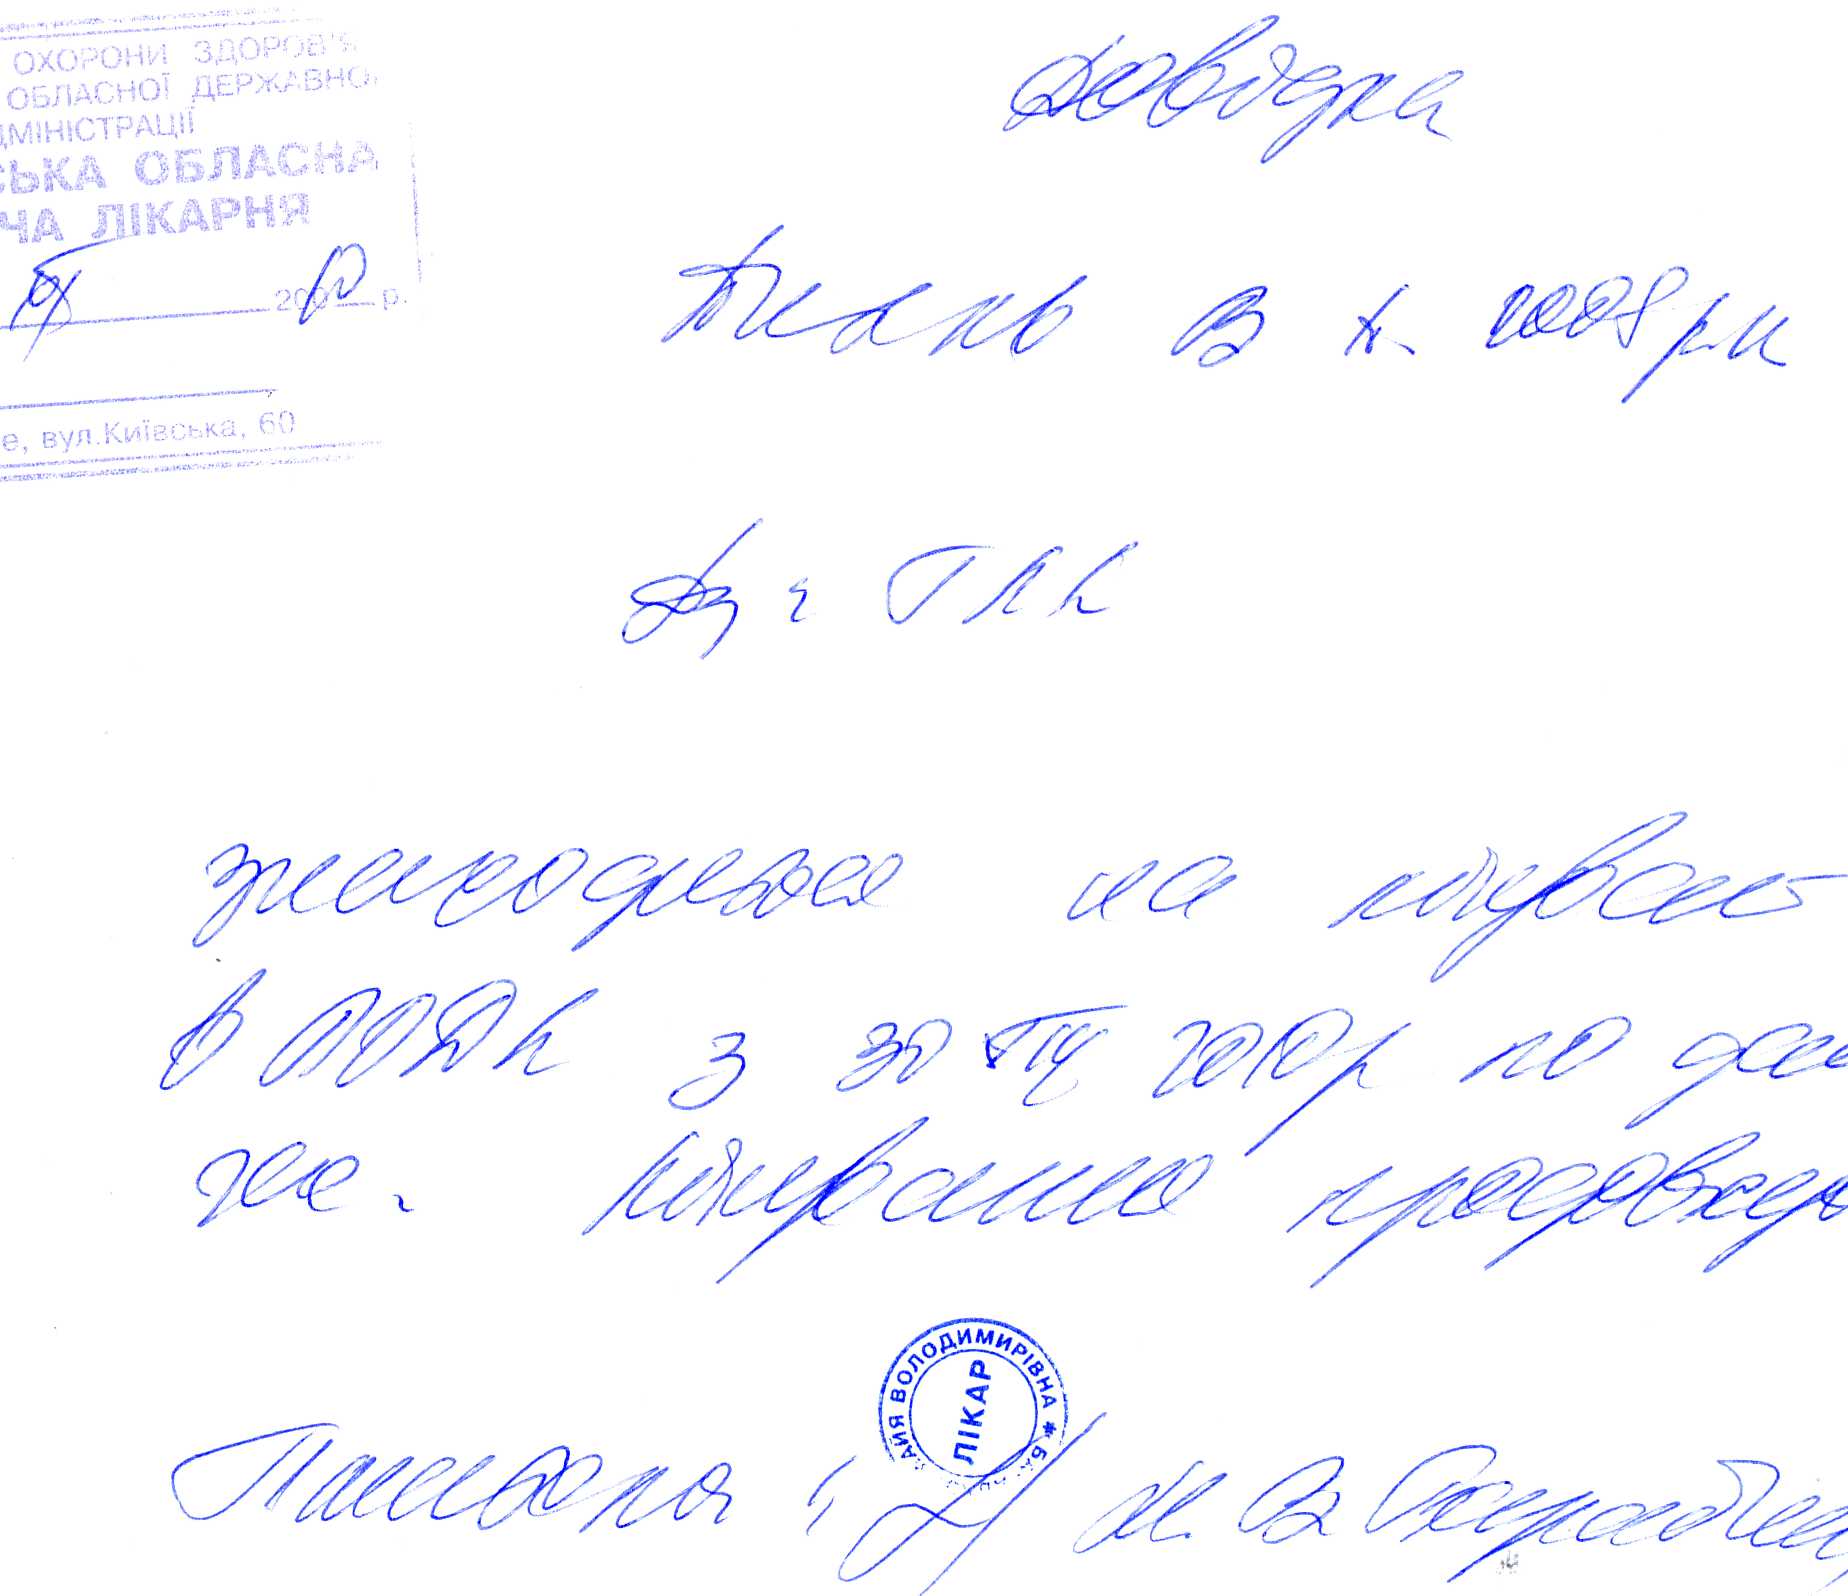 ОХОРОНИ ЗДОРОВ'Я
ОБЛАСНОЇ ДЕРЖАВНОЇ
ДМІНІСТРАЦІЇ
СЬКА ОБЛАСНА
ЧА ЛІКАРНЯ
IX 200 р.
е, вул.Київська, 60
Довідка
В. 2008 р.н
Дз:
знаходиться на лікуван
в з 30 VIII 2010р по дани
час. Лікування продовжує
ВОЛОДИМИРІВНА * ЛІКАР
М. В.